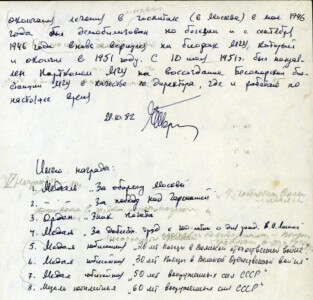 окончания лечения в госпитале (в Москве) в мае 1946
года был демобилизован по болезни и с сентября
1946 года вновь вернулся на биофак МГУ, который
и окончил в 1951 году. С 10 мая 1951г. был направ
лен Парткомом МГУ на воссоздание Беломорской био
станции МГУ в качестве ее директора, где и работаю по
настоящее время
Имею награды:
1. Медаль "За оборону Москвы"
2. "За победу над Германией"
3. Орден "Знак Почета"
4. Медаль "За доблестн. труд в
5. Медаль юбилейная "20 лет Победы в Великой Отечественной войне"
6. Медаль юбилейная "30 лет Победы в Великой Отечественной войне"
7. Медаль юбилейная "50 лет вооруженных сил СССР"
8. Медаль юбилейная "60 лет вооруженных сил СССР"